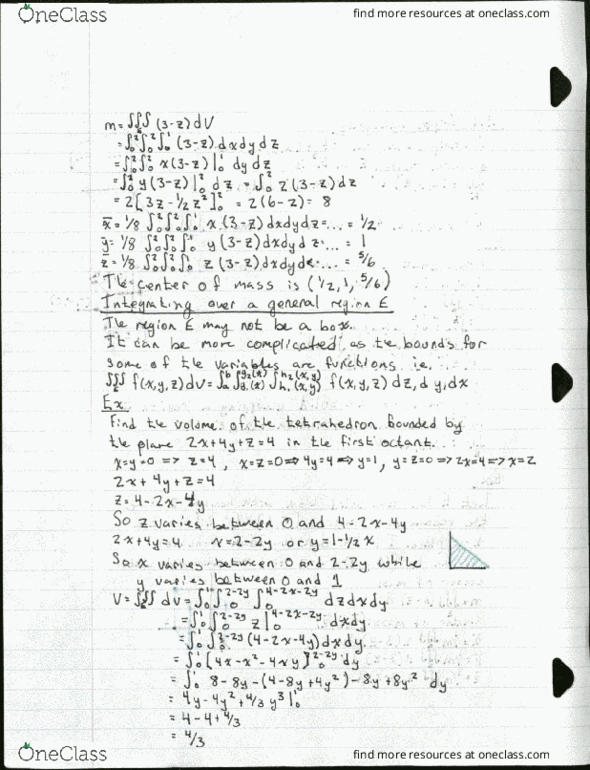 OneClass
find more resources at oneclass.com
m = ∭ (3-z) dV
= ∫₀²∫₀²∫₀¹ (3-z) dxdydz
= ∫₀²∫₀² x(3-z)|₀¹ dy dz
= ∫₀² y(3-z)|₀² dz = ∫₀² 2(3-z)dz
= 2[3z - ½z²]₀² = 2(6-2) = 8
x̄ = 1/8 ∫₀²∫₀²∫₀¹ x (3-z) dxdydz = ... = 1/2
ȳ = 1/8 ∫₀²∫₀²∫₀¹ y (3-z) dxdydz = ... = 1
z̄ = 1/8 ∫₀²∫₀²∫₀¹ z (3-z) dxdydz = ... = 5/6
The center of mass is (1/2, 1, 5/6)
Integrating over a general region E
The region E may not be a box.
It can be more complicated as the bounds for
some of the variables are functions ie.
∭_E f(x,y,z)dV = ∫ₐᵇ ∫_{g₁(x)}^{g₂(x)} ∫_{h₁(x,y)}^{h₂(x,y)} f(x,y,z) dz, dy, dx
Ex.
Find the volume of the tetrahedron bounded by
the plane 2x+4y+z=4 in the first octant.
x=y=0 => z=4, x=z=0 => 4y=4 => y=1, y=z=0 => 2x=4 => x=2
2x+4y+z=4
z=4-2x-4y
So z varies between 0 and 4-2x-4y
2x+4y=4 x=2-2y or y=1-1/2x
So x varies between 0 and 2-2y while
y varies between 0 and 1
V = ∭_E dv = ∫₀¹ ∫₀^{2-2y} ∫₀^{4-2x-2y} dzdxdy
= ∫₀¹ ∫₀^{2-2y} z|₀^{4-2x-2y} dxdy
= ∫₀¹ ∫₀^{2-2y} (4-2x-4y)dxdy
= ∫₀¹ [4x-x²-4xy]₀^{2-2y} dy
= ∫₀¹ 8-8y-(4-8y+4y²)-8y+8y² dy
= 4y-4y²+4/3 y³|₀¹
= 4-4+4/3
= 4/3
OneClass
find more resources at oneclass.com